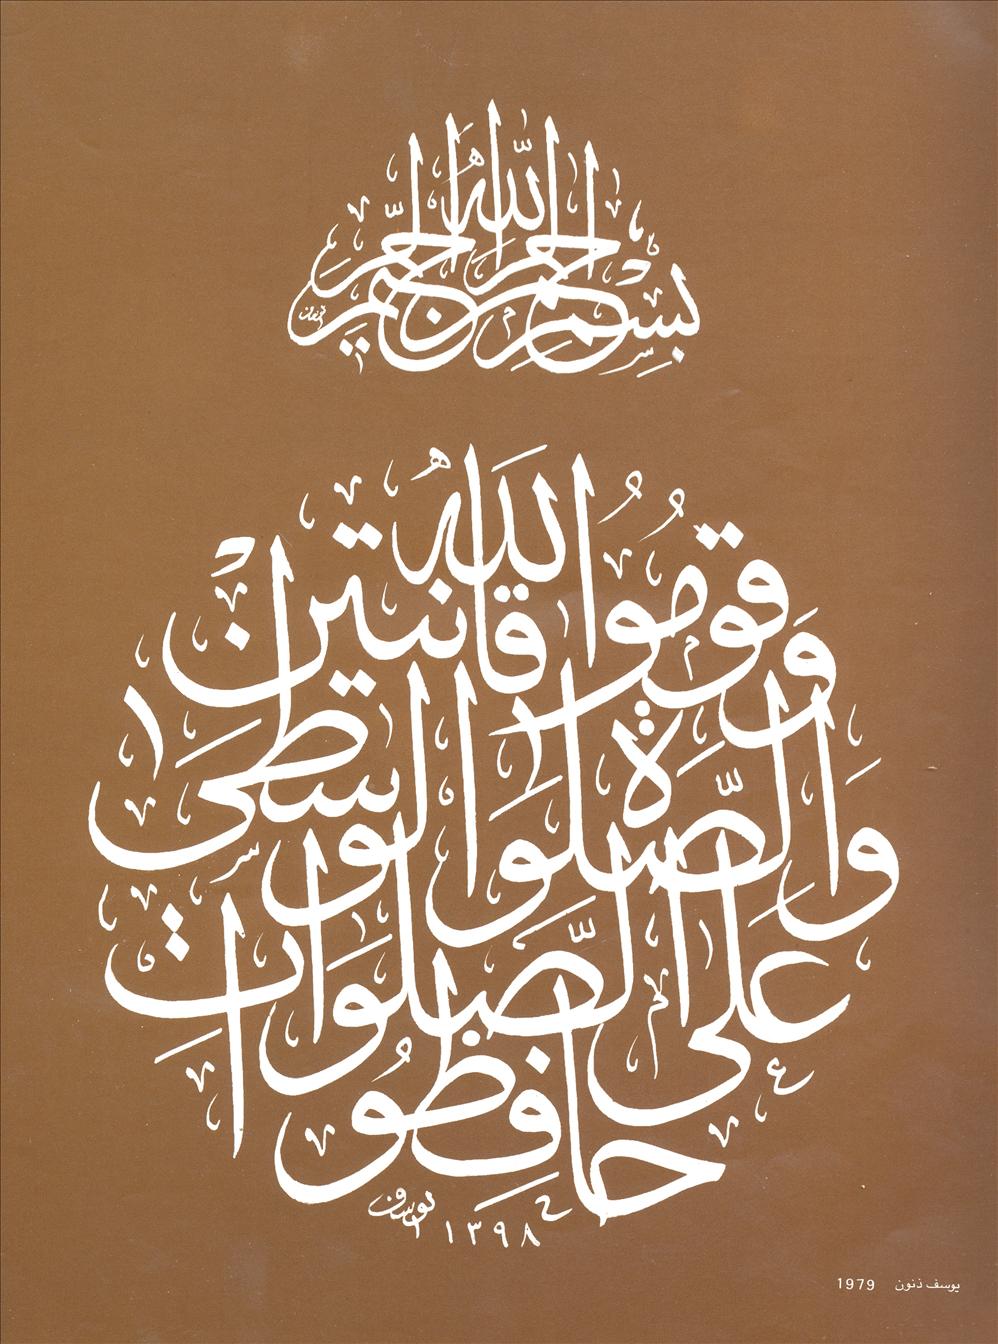 بسم الله الرحمن الرحيم
حافظوا على الصلوات
والصلوة الوسطى
وقوموا لله قانتين
يوسف ١٣٩٨
يوسف ذنون 1979